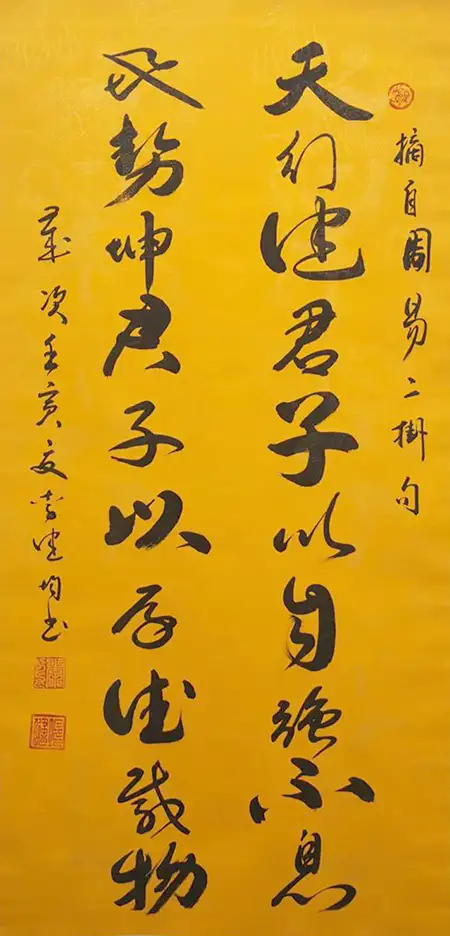 摘自周易二掛句
天行健君子以自強不息
地勢坤君子以厚德載物
歲次壬寅夏健均书